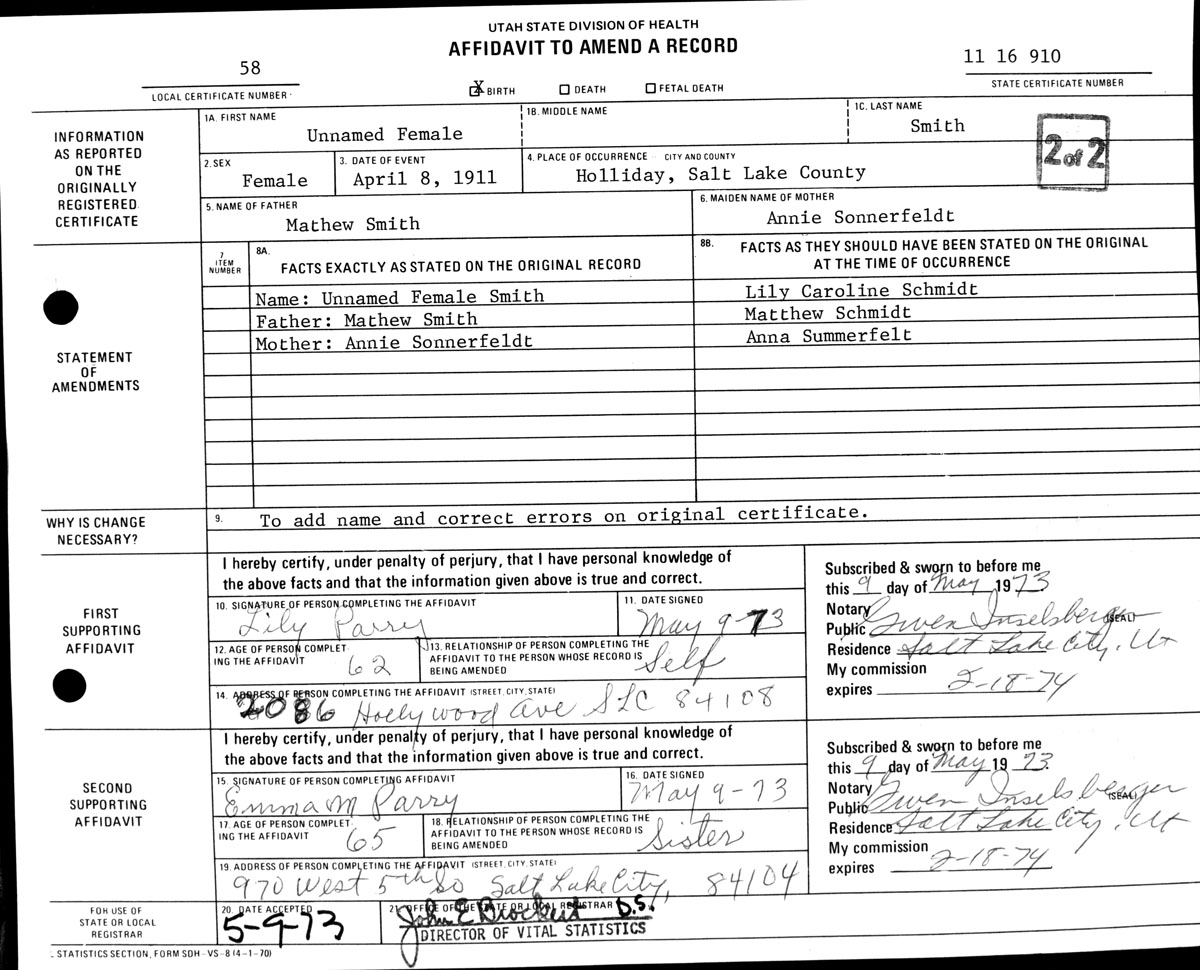 UTAH STATE DIVISION OF HEALTH
AFFIDAVIT TO AMEND A RECORD
58
LOCAL CERTIFICATE NUMBER
X BIRTH DEATH FETAL DEATH
11 16 910
STATE CERTIFICATE NUMBER
INFORMATION
AS REPORTED
ON THE
ORIGINALLY
REGISTERED
CERTIFICATE
1A. FIRST NAME
Unnamed Female
1B. MIDDLE NAME
1C. LAST NAME
Smith
2 of 2
2. SEX
Female
3. DATE OF EVENT
April 8, 1911
4. PLACE OF OCCURRENCE CITY AND COUNTY
Holliday, Salt Lake County
5. NAME OF FATHER
Mathew Smith
6. MAIDEN NAME OF MOTHER
Annie Sonnerfeldt
STATEMENT
OF
AMENDMENTS
7
ITEM
NUMBER
8A.
FACTS EXACTLY AS STATED ON THE ORIGINAL RECORD
8B. FACTS AS THEY SHOULD HAVE BEEN STATED ON THE ORIGINAL
AT THE TIME OF OCCURRENCE
Name: Unnamed Female Smith
Lily Caroline Schmidt
Father: Mathew Smith
Matthew Schmidt
Mother: Annie Sonnerfeldt
Anna Summerfelt
WHY IS CHANGE
NECESSARY?
9. To add name and correct errors on original certificate.
FIRST
SUPPORTING
AFFIDAVIT
I hereby certify, under penalty of perjury, that I have personal knowledge of
the above facts and that the information given above is true and correct.
10. SIGNATURE OF PERSON COMPLETING THE AFFIDAVIT
Lily Parry
11. DATE SIGNED
May 9-73
12. AGE OF PERSON COMPLET
ING THE AFFIDAVIT 62
13. RELATIONSHIP OF PERSON COMPLETING THE
AFFIDAVIT TO THE PERSON WHOSE RECORD IS
BEING AMENDED Self
14. ADDRESS OF PERSON COMPLETING THE AFFIDAVIT (STREET, CITY, STATE)
2086 Hollywood Ave SLC 84108
Subscribed & sworn to before me
this 9 day of May 1973
Notary
Public Gwen Inselsberger (SEAL)
Residence Salt Lake City, Ut
My commission
expires 2-18-74
SECOND
SUPPORTING
AFFIDAVIT
I hereby certify, under penalty of perjury, that I have personal knowledge of
the above facts and that the information given above is true and correct.
15. SIGNATURE OF PERSON COMPLETING AFFIDAVIT
Emma M Parry
16. DATE SIGNED
May 9-73
17. AGE OF PERSON COMPLET
ING THE AFFIDAVIT 65
18. RELATIONSHIP OF PERSON COMPLETING THE
AFFIDAVIT TO THE PERSON WHOSE RECORD IS
BEING AMENDED Sister
19. ADDRESS OF PERSON COMPLETING THE AFFIDAVIT (STREET, CITY, STATE)
970 West 5th So Salt Lake City, 84104
Subscribed & sworn to before me
this 9 day of May 1973
Notary
Public Gwen Inselsberger (SEAL)
Residence Salt Lake City, Ut
My commission
expires 2-18-74
FOR USE OF
STATE OR LOCAL
REGISTRAR
20. DATE ACCEPTED
5-9-73
21. OFFICE OF THE STATE OR LOCAL REGISTRAR
John E Brockert D.S.
DIRECTOR OF VITAL STATISTICS
STATISTICS SECTION, FORM SDH-VS-8 (4-1-70)